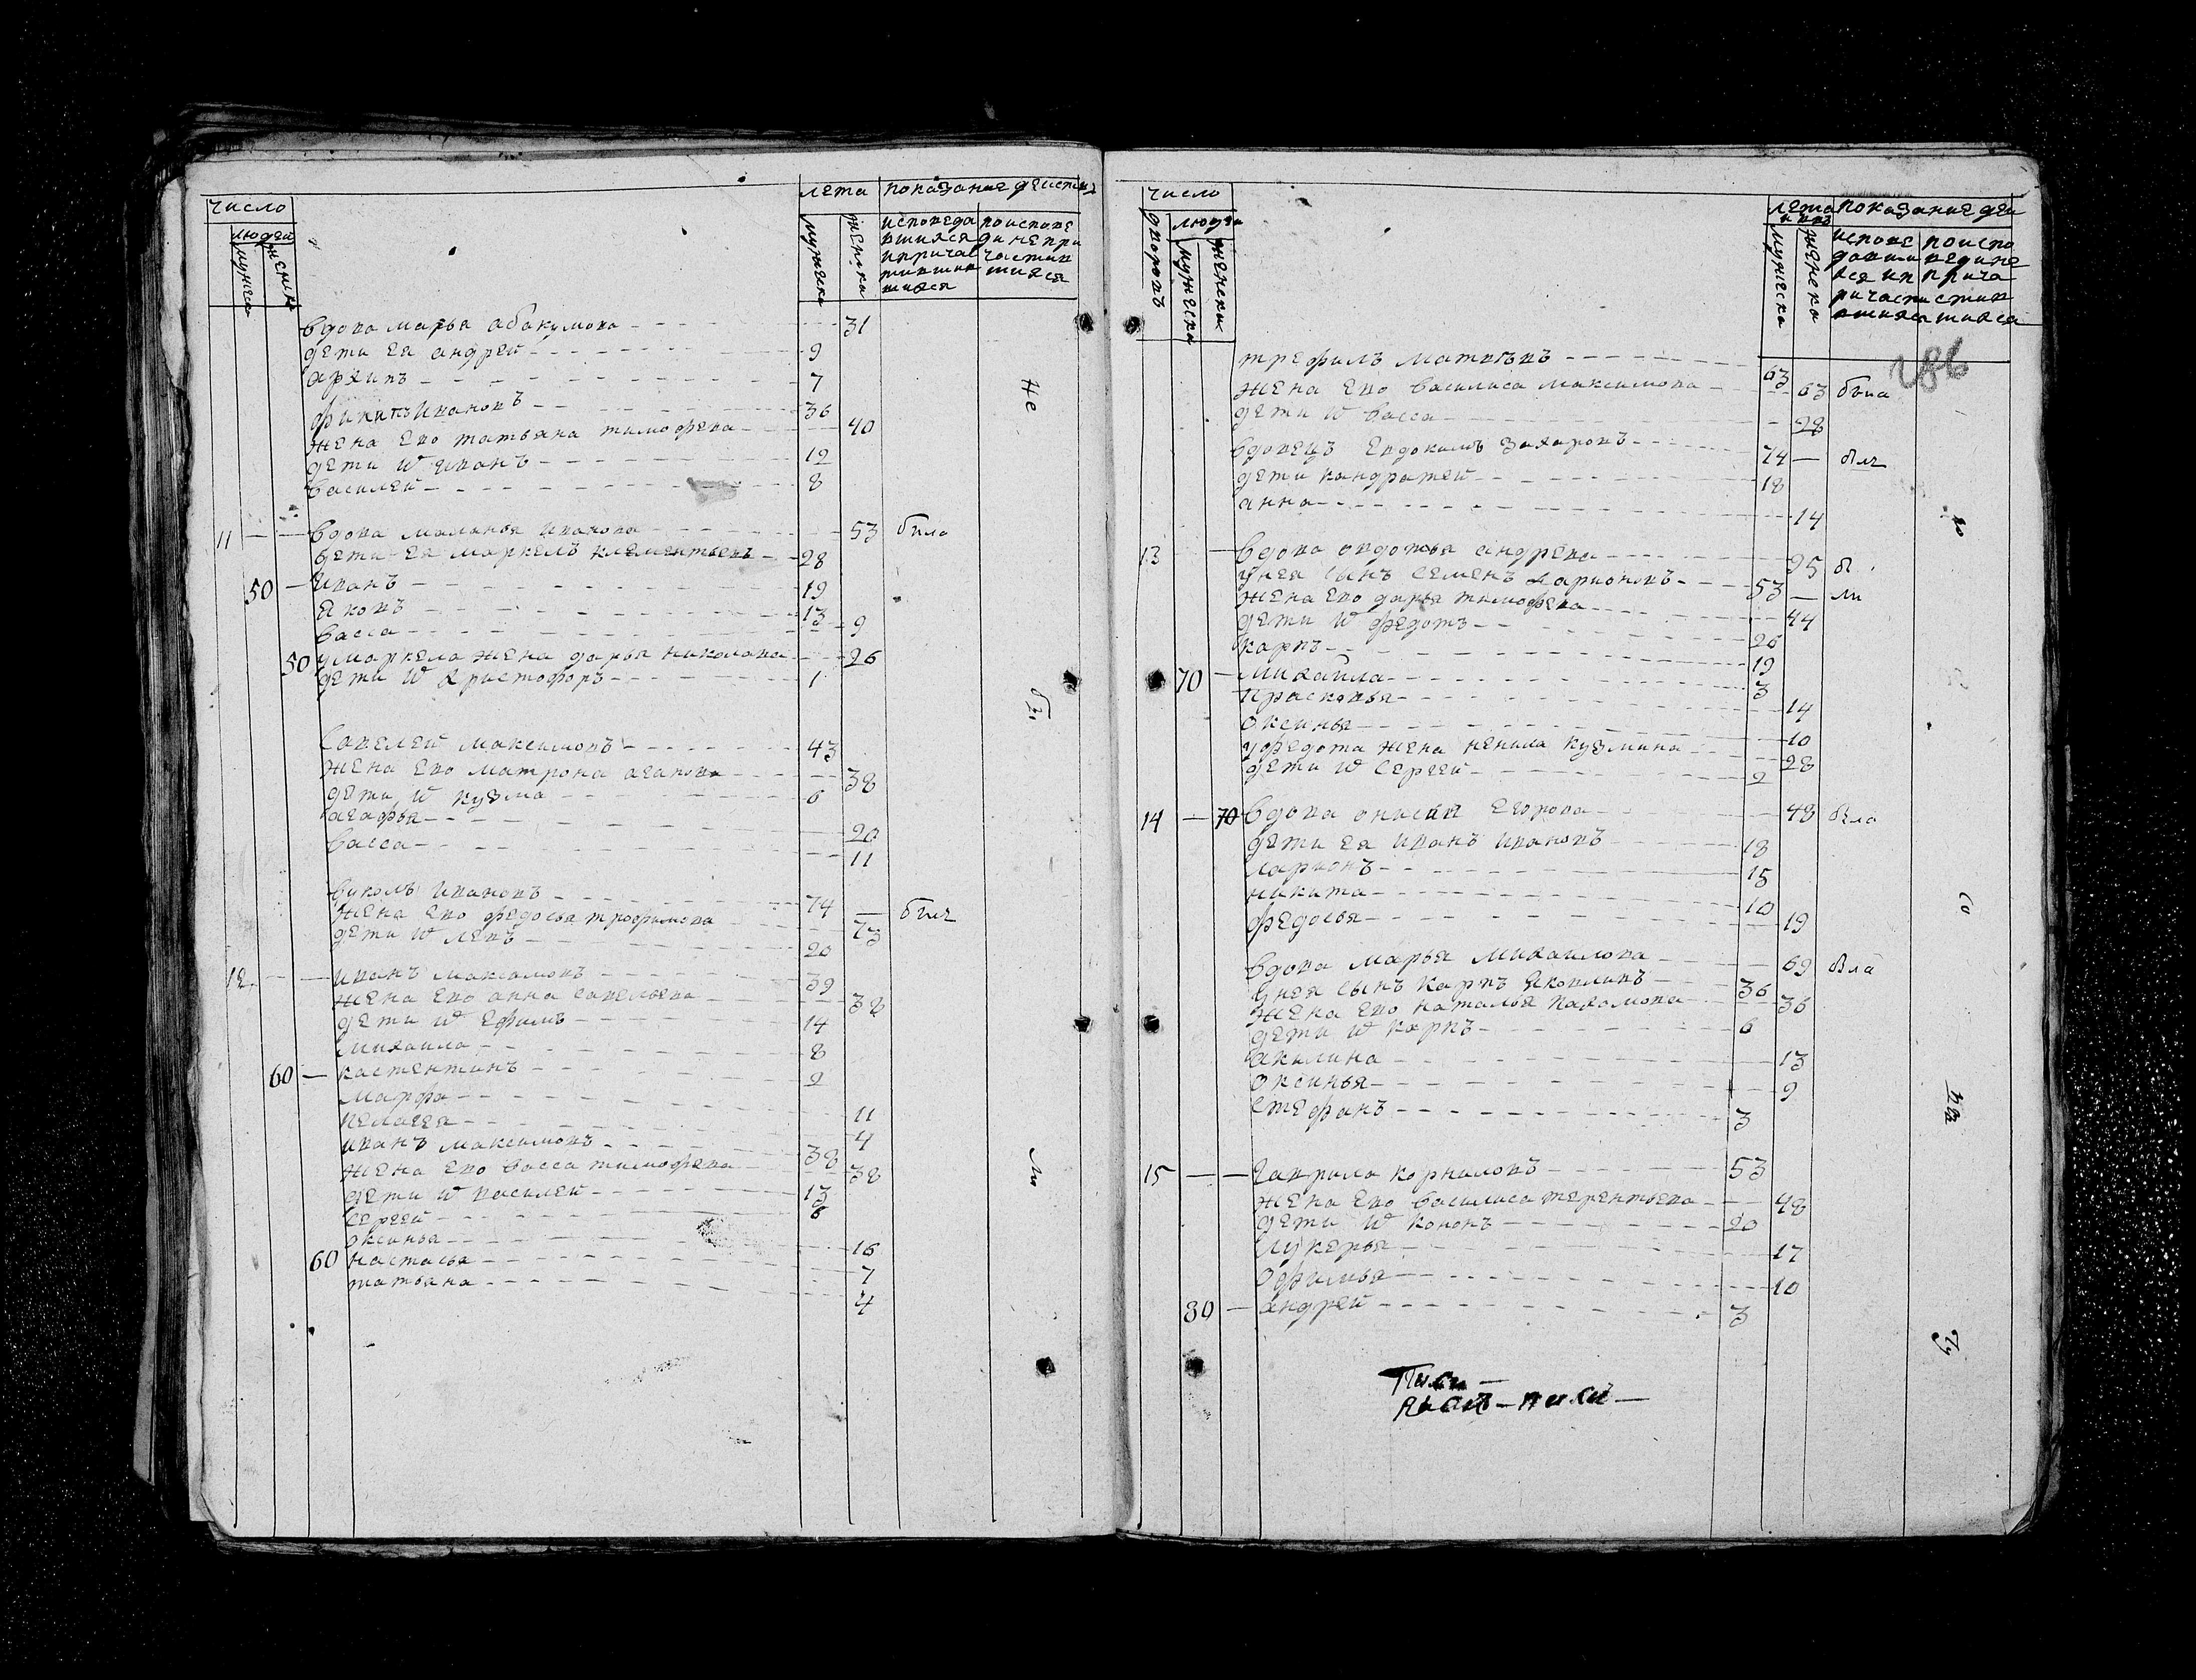 число
людей
мужеска
женска
лета
мужеска
женска
показание деиств
исповеда
вшияся
ипричас
тившии
шияся
поиспове
ди непри
частив
шияся
вдова марья абакумова 31
дети ея андрей 9
архипъ 7
филипъ Ивановъ 36
жена Его татьяна тимофева 40
дети W Иванъ 12
василей 8
11 вдова маланья Иванова 53 была
дети ея маркелъ клементьевъ 28
50 Иванъ 19
Яковъ 13
васса 9
50 умаркела жена дарья николаева 26
дети W Христофоръ 1
Савелей максимовъ 43
жена Его матрона агапова 38
дети W кузма 6
агафья 20
васса 11
вуколъ Ивановъ 74 былъ
жена Его федосья трофимова 73
дети W левъ 20
12 Иванъ максимовъ 39
жена Его анна савельева 38
дети W Ефимъ 14
михаила 8
60 кастентинъ 2
марфа 11
пелагея 4
иванъ максимовъ 38
жена Его васса тимофева 38
дети W василей 13
сергей 6
оксинья 16
60 настасья 7
татьяна 4
Не
число
дворовъ
людей
мужеска
женска
лета
мужеска
женска
показание деи
186
трефилъ матвъевъ 63
жена Его василиса максимова 63 была
дети W васса 28
вдовецъ Евдокимъ захаровъ 74 былъ
дети кандратей 18
анна 14
13 вдова овдотья андрева 95
унея сынъ семенъ ларионовъ 53
жена Его дарья тимофева 44
дети W федотъ 26
карпъ 19
70 михаила 3
прасковья 14
оксинья 10
уфедота жена ненила кузмина 28
дети W Сергей 2
14 70 вдова онисья Егорова 48 была
дети ея иванъ ивановъ 18
ларионъ 15
никита 10
федосья 19
вдова марья михаилова 69 была
унея сынъ карпъ Яковлинъ 36
жена Его наталья пахомова 36
дети W карпъ 6
акилина 13
оксинья 9
стефанъ 3
15 гаврила корниловъ 53
жена Его василиса терентьева 48
дети W кононъ 20
лукерья 17
офимья 10
80 андрей 3